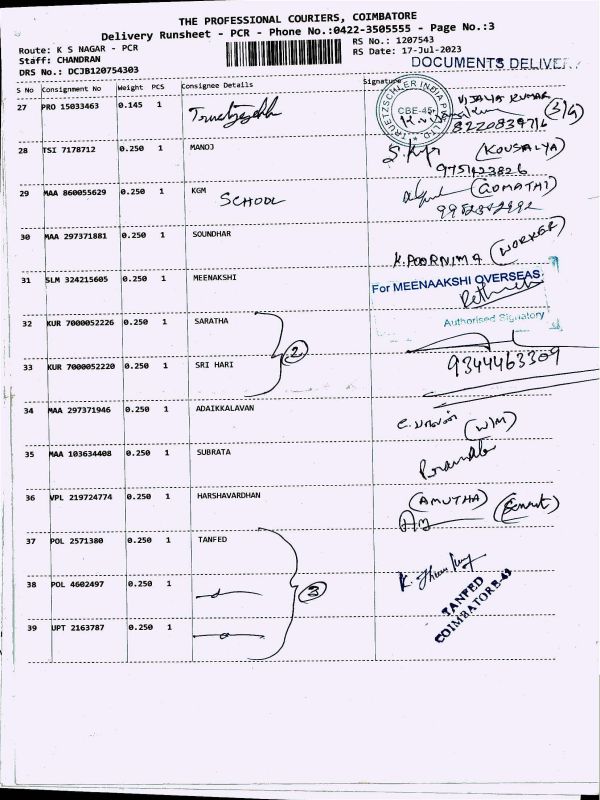 THE PROFESSIONAL COURIERS, COIMBATORE
Delivery Runsheet - PCR - Phone No.:0422-3505555 - Page No.:3
Route: K S NAGAR - PCR RS No.: 1207543
Staff: CHANDRAN RS Date: 17-Jul-2023
DRS No.: DCJB120754303 DOCUMENTS DELIVER
S No Consignment No Weight PCS Consignee Details Signature
27 PRO 15033463 0.145 1
TRUETZSCHLER INDIA PVT. LTD. CBE-45
VIJAYA KUMAR
28 TSI 7178712 0.250 1 MANOJ (KOUSALYA)
29 MAA 860055629 0.250 1 KGM SCHOOL (GOMATHI)
30 MAA 297371881 0.250 1 SOUNDHAR
K.POORNIMA (WORKER)
31 SLM 324215605 0.250 1 MEENAKSHI
For MEENAAKSHI OVERSEAS
Authorised Signatory
32 KUR 7000052226 0.250 1 SARATHA
2
33 KUR 7000052220 0.250 1 SRI HARI 9344463309
34 MAA 297371946 0.250 1 ADAIKKALAVAN
35 MAA 103634408 0.250 1 SUBRATA
36 VPL 219724774 0.250 1 HARSHAVARDHAN (AMUTHA)
37 POL 2571380 0.250 1 TANFED
38 POL 4602497 0.250 1
3
TANFED
COIMBATORE-43
39 UPT 2163787 0.250 1